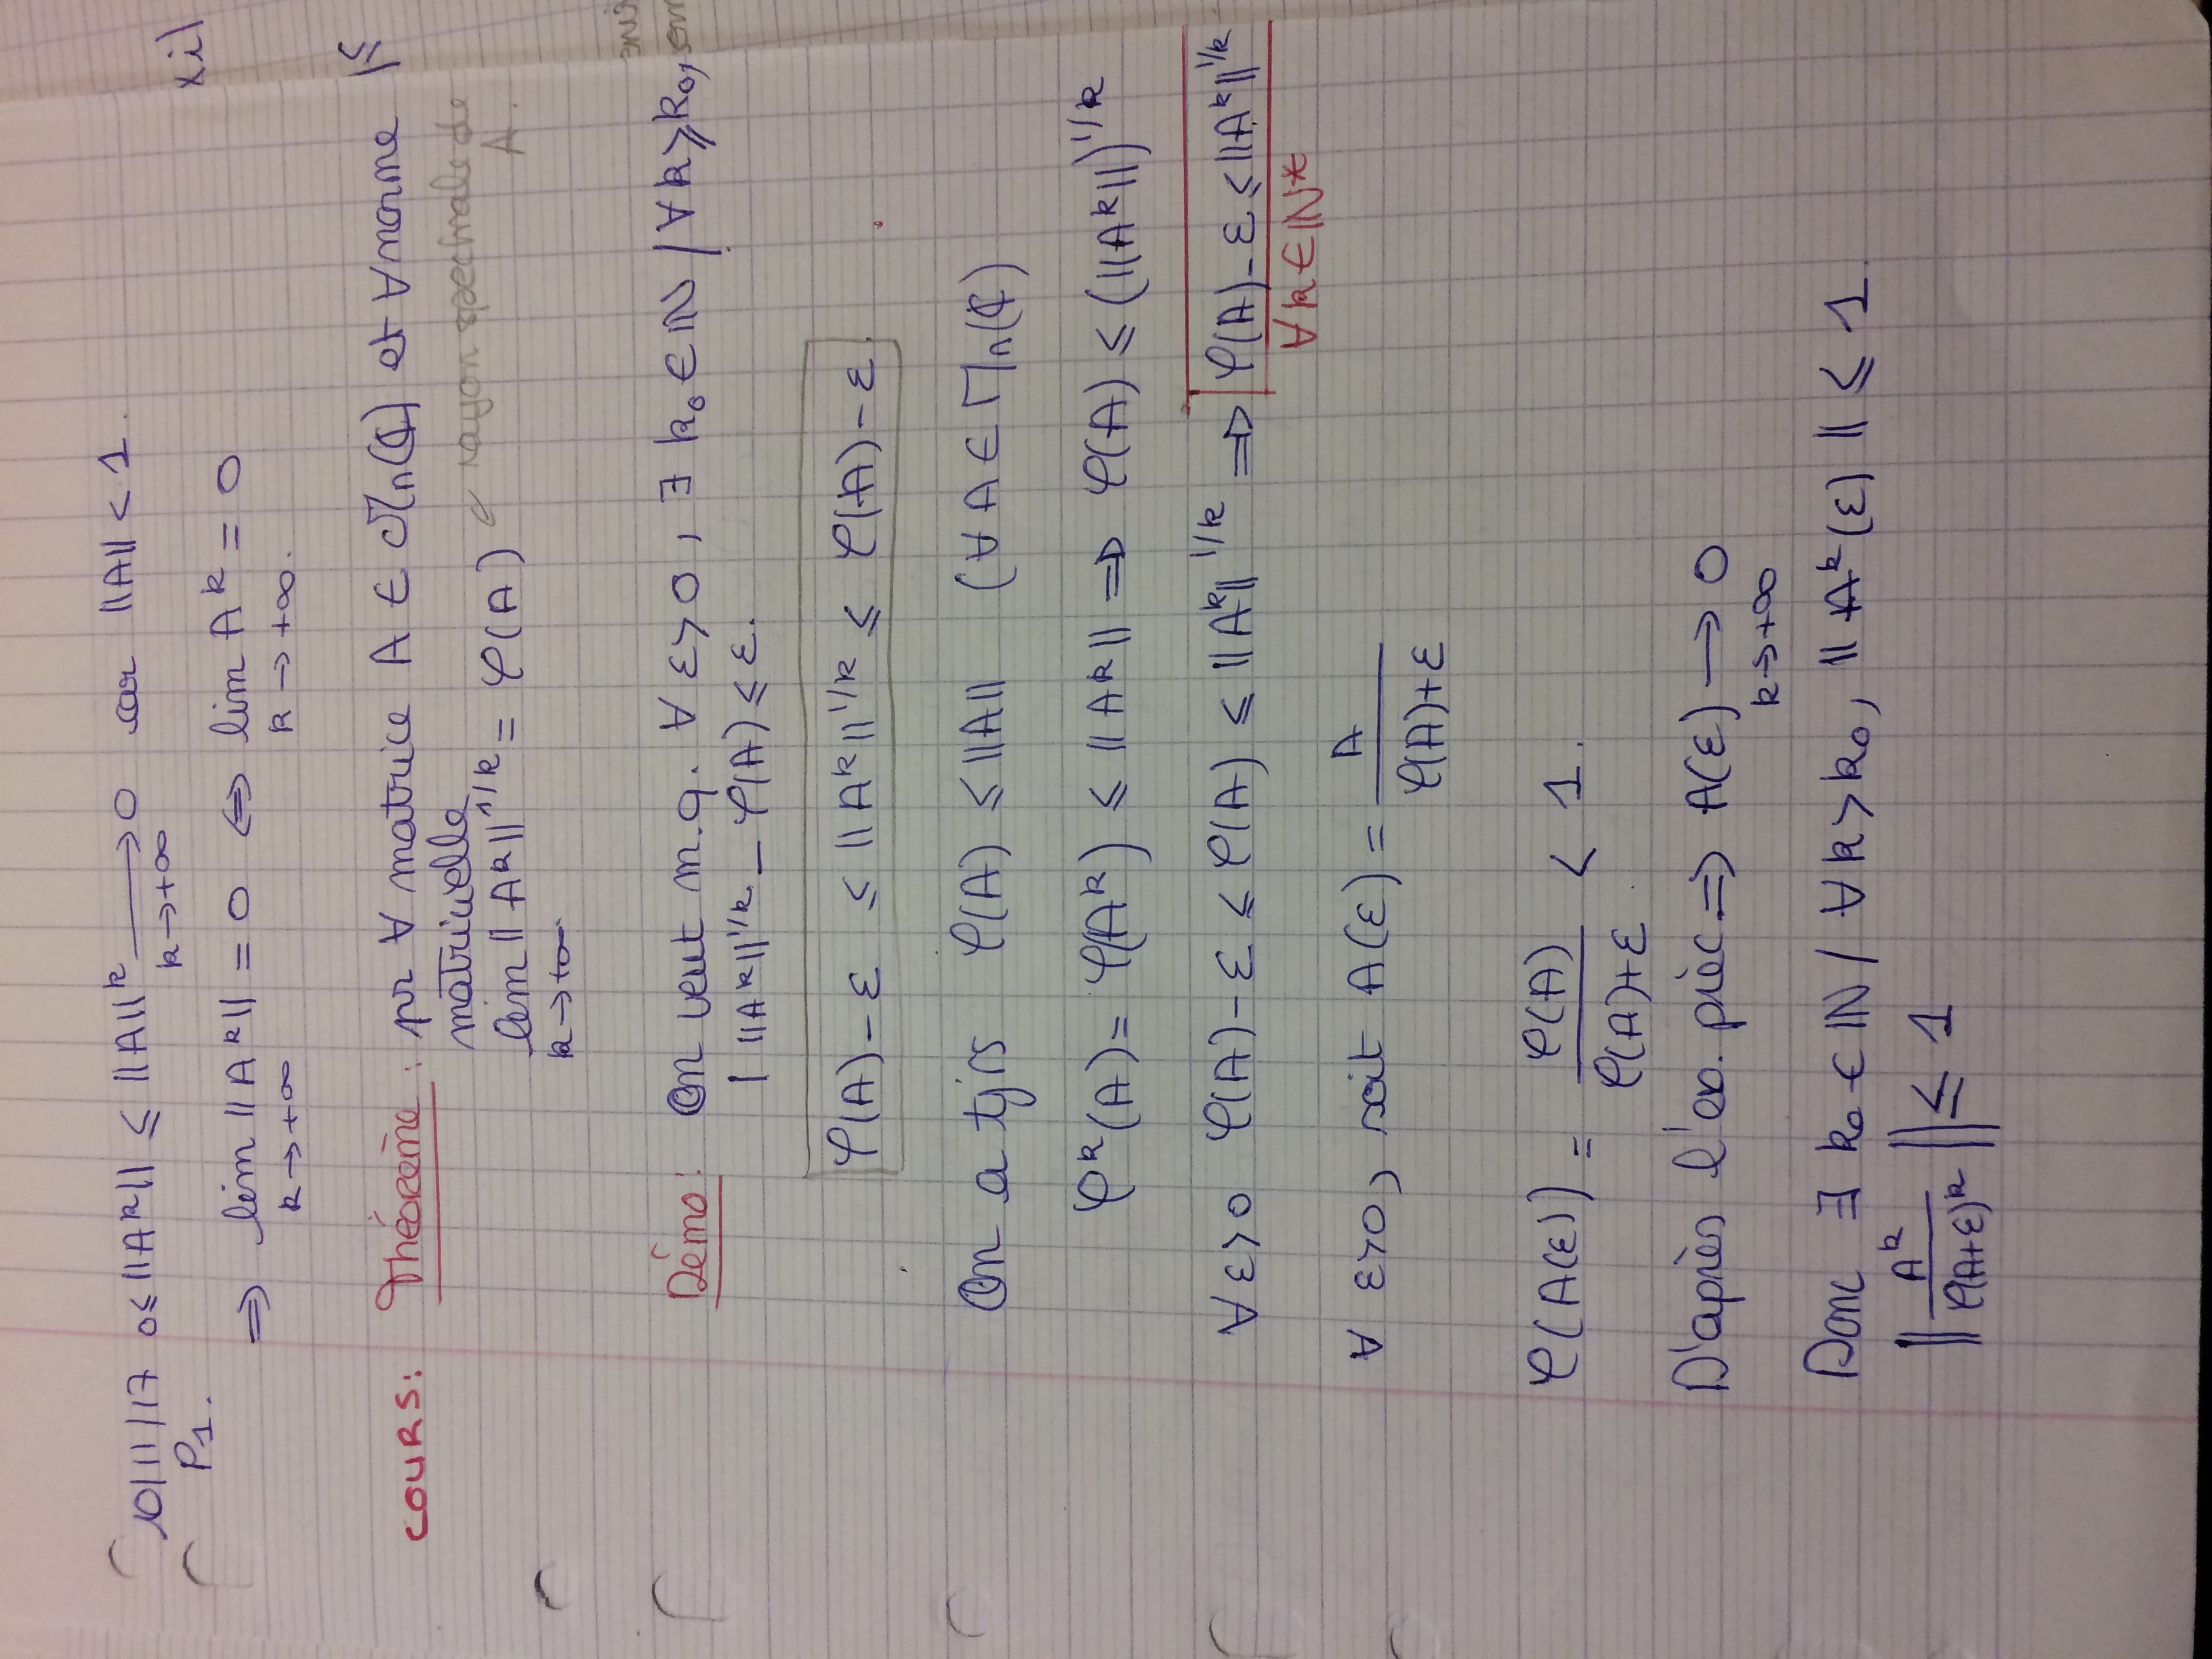 10/11/17 0 ≤ ||A^k|| ≤ ||A||^k ⟶ 0 car ||A|| < 1.
k → +∞
P1.
⇒ lim ||A^k|| = 0 ⇔ lim A^k = 0
k → +∞ k → +∞.
COURS: Théorème : pr ∀ matrice A ∈ Mn(ℂ) et ∀ norme
matricielle
lim ||A^k||^1/k = ρ(A) ← rayon spectrale de
A.
k → +∞
Démo: On veut m.q. ∀ ε > 0, ∃ k₀ ∈ ℕ / ∀ k ≥ k₀,
| ||A^k||^1/k − ρ(A) ≤ ε.
ρ(A) − ε ≤ ||A^k||^1/k ≤ ρ(A) − ε.
On a tjrs ρ(A) ≤ ||A|| (∀ A ∈ Mn(ℂ)
ρ^k(A) = ρ(A^k) ≤ ||A^k|| ⇒ ρ(A) ≤ (||A^k||)^1/k
∀ ε > 0 ρ(A) − ε ≤ ρ(A) ≤ ||A^k||^1/k ⇒ ρ(A) − ε ≤ ||A^k||^1/k
∀ k ∈ ℕ*
∀ ε > 0, soit A(ε) = A / (ρ(A) + ε)
ρ(A(ε)) = ρ(A) / (ρ(A) + ε) < 1.
D'après l'ex. préc. ⇒ A(ε) → 0
k → +∞
Donc ∃ k₀ ∈ ℕ / ∀ k > k₀, ||A^k(ε)|| ≤ 1.
|| A^k / ρ(A+ε)^k || ≤ 1